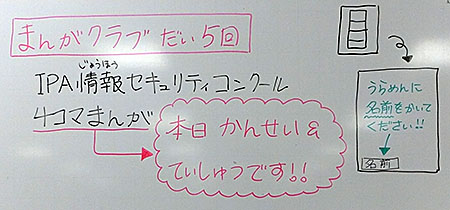 まんがクラブ だい5回
じょうほう
IPA情報セキュリティコンクール
4コマまんが
本日 かんせい&
ていしゅうです!!
うらめんに
名前をかいて
ください!!
名前